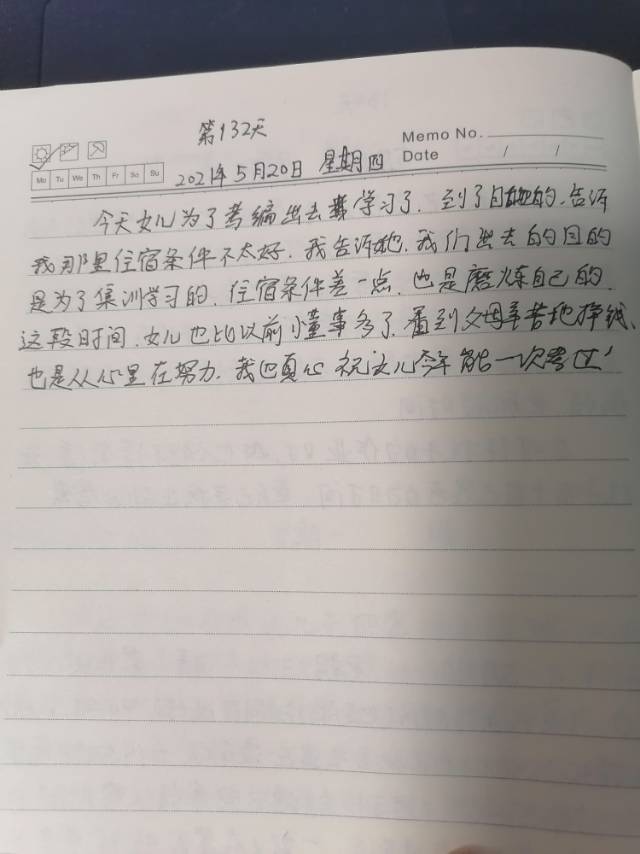 第132天
Memo No.
Mo Tu We Th Fr Sa Su
2021年5月20日 星期四
Date / /
今天女儿为了考编出去学习了.到了目地的.告诉
我那里住宿条件不太好.我告诉她.我们出去的目的
是为了集训学习的.住宿条件差一点.也是磨炼自己的.
这段时间.女儿也比以前懂事多了.看到父母辛苦地挣钱、
也是从心里在努力.我也真心祝女儿今年能一次考过!